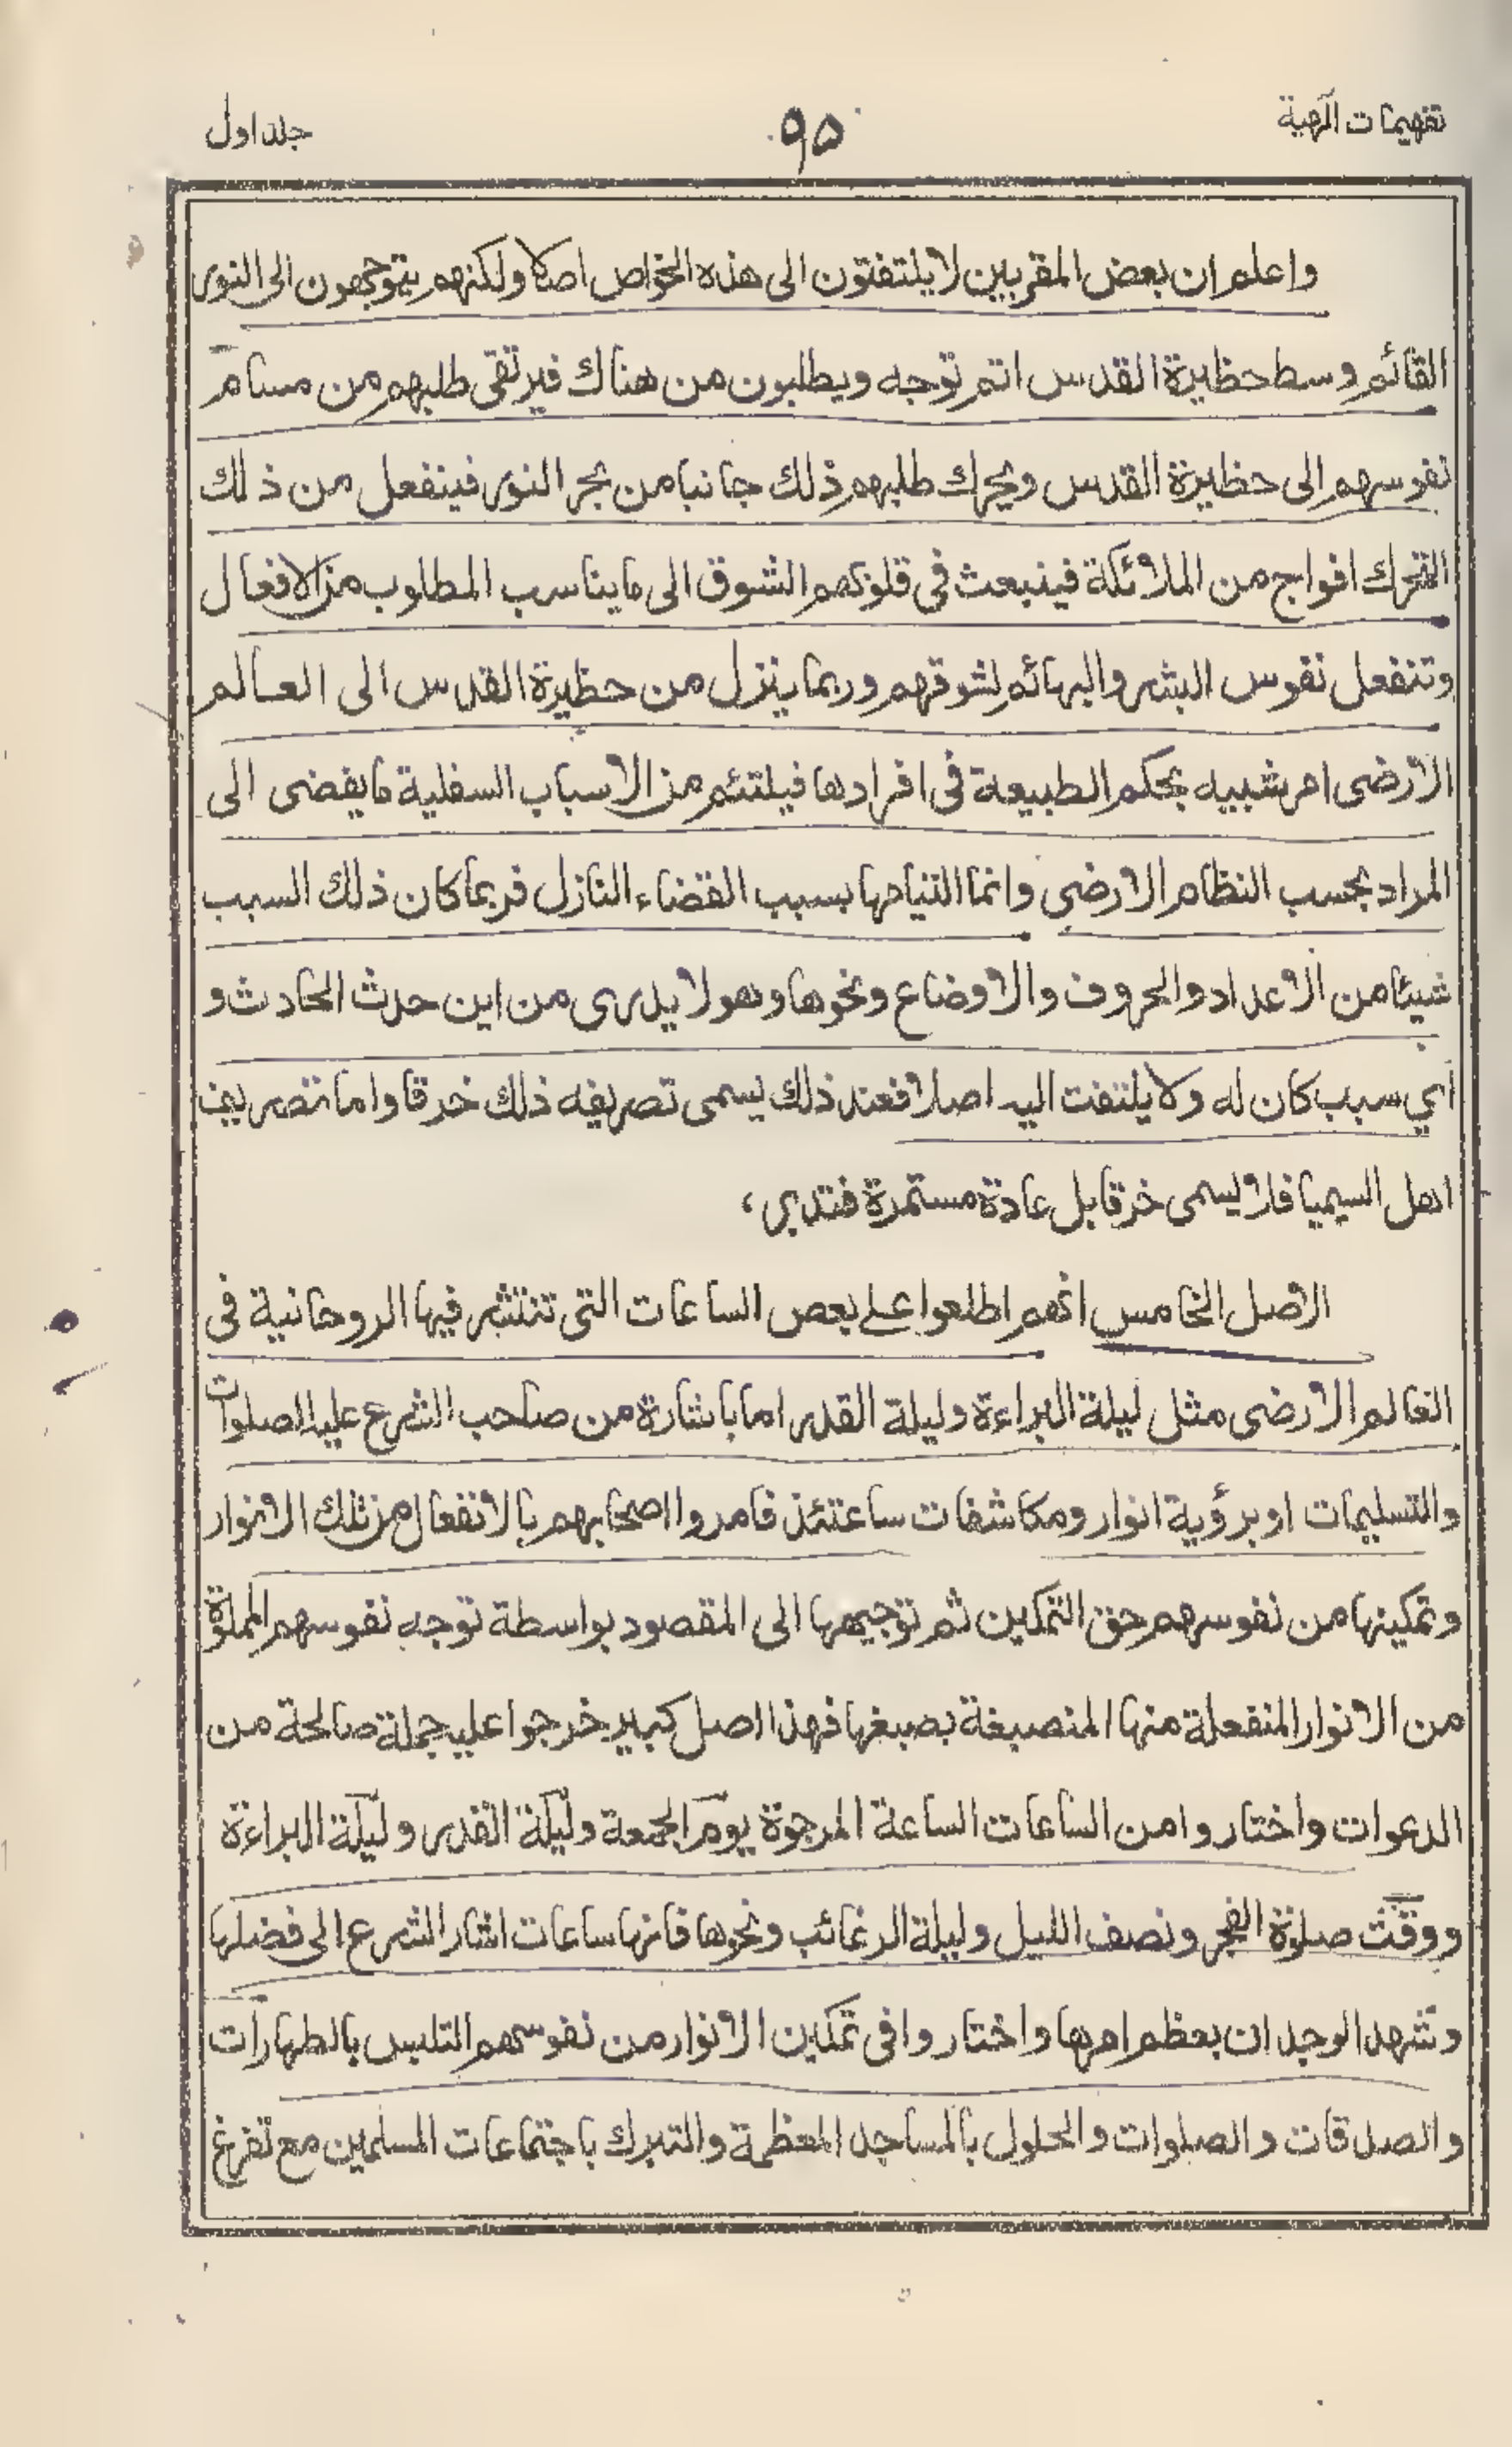 تفهيمات الٓهية
٩٥
جلد اول
واعلم ان بعض المقربين لا يلتفتون الى هذه الخواص اصلا ولكنهم يتوجهون الى النور
القائم وسط حظيرة القدس اتم توجه ويطلبون من هناك فيرتقى طلبهم من مسام
نفوسهم الى حظيرة القدس ويحرك طلبهم ذلك جانبا من بحر النور فينفعل من ذلك
التحرك افواج من الملائكة فينبعث فى قلوبهم الشوق الى ما يناسب المطلوب من الافعال
وتنفعل نفوس البشر والبهائم لشوقهم وربما ينزل من حظيرة القدس الى العالم
الارضى امر شبيه بحكم الطبيعة فى افرادها فيلتئم من الاسباب السفلية ما يفضى الى
المراد بحسب النظام الارضى وانما التيامها بسبب القضاء النازل فربما كان ذلك السبب
شيئا من الاعداد والحروف والاوضاع ونحوها وهو لا يدرى من اين حدث الحادث و
اي سبب كان له ولا يلتفت اليه اصلا فعند ذلك يسمى تصريفه ذلك خرقا واما تصريف
اهل السيميا فلا يسمى خرقا بل عادة مستمرة فتدبر ،
الاصل الخامس انهم اطلعوا على بعض الساعات التى تنتشر فيها الروحانية فى
العالم الارضى مثل ليلة البراءة وليلة القدر اما باشارة من صاحب الشرع عليه الصلوات
والتسليمات او برؤية انوار ومكاشفات ساعتئذ فامروا اصحابهم بالانفعال من تلك الانوار
وتمكينها من نفوسهم حق التمكين ثم توجيهها الى المقصود بواسطة توجه نفوسهم المملوة
من الانوار المنفعلة منها المنصبغة بصبغها فهذا اصل كبير خرجوا عليه جملة صالحة من
الدعوات واختاروا من الساعات الساعة المرجوة يوم الجمعة وليلة القدر وليلة البراءة
ووقت صلوة الفجر ونصف الليل وليلة الرغائب ونحوها فانها ساعات اشار الشرع الى فضلها
وشهد الوجدان بعظم امرها واختاروا فى تمكين الانوار من نفوسهم التلبس بالطهارات
والصدقات والصلوات والحلول بالمساجد المعظمة والتبرك باجتماعات المسلمين مع تفرغ